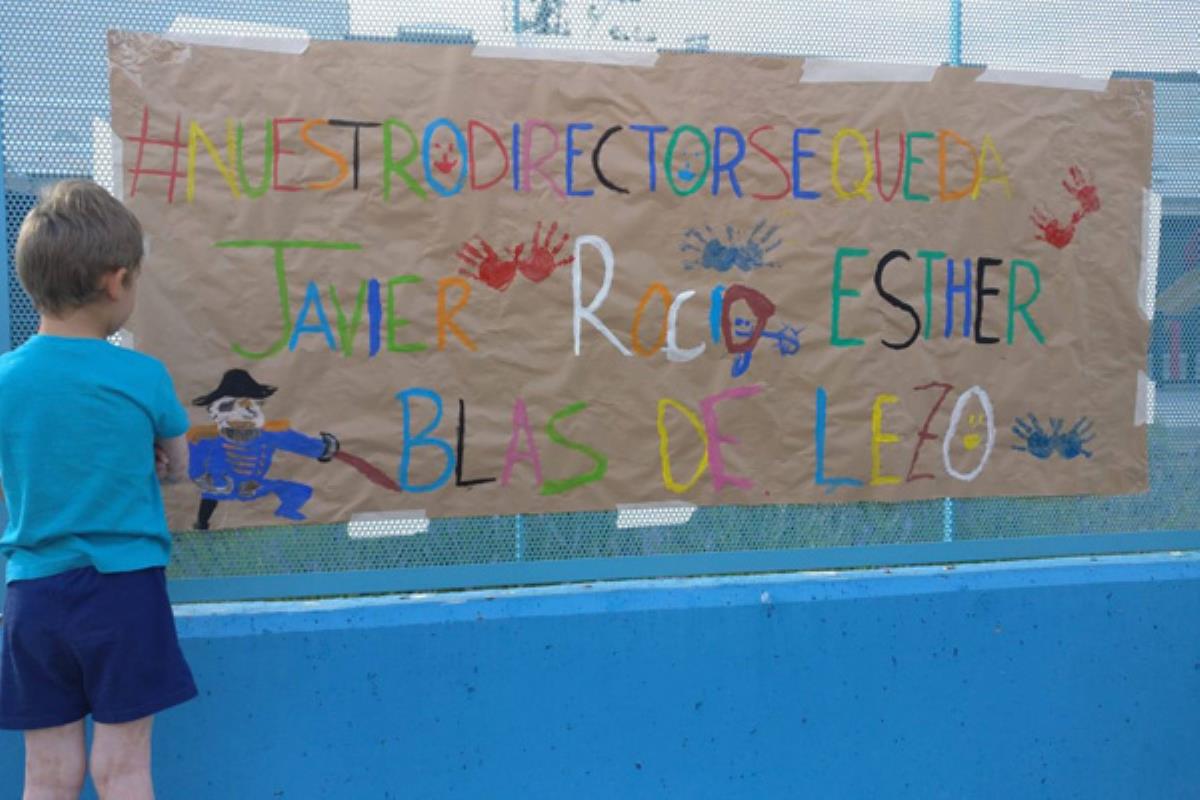 #NUESTRODIRECTORSEQUEDA
JAVIER ROCIO ESTHER
BLAS DE LEZO